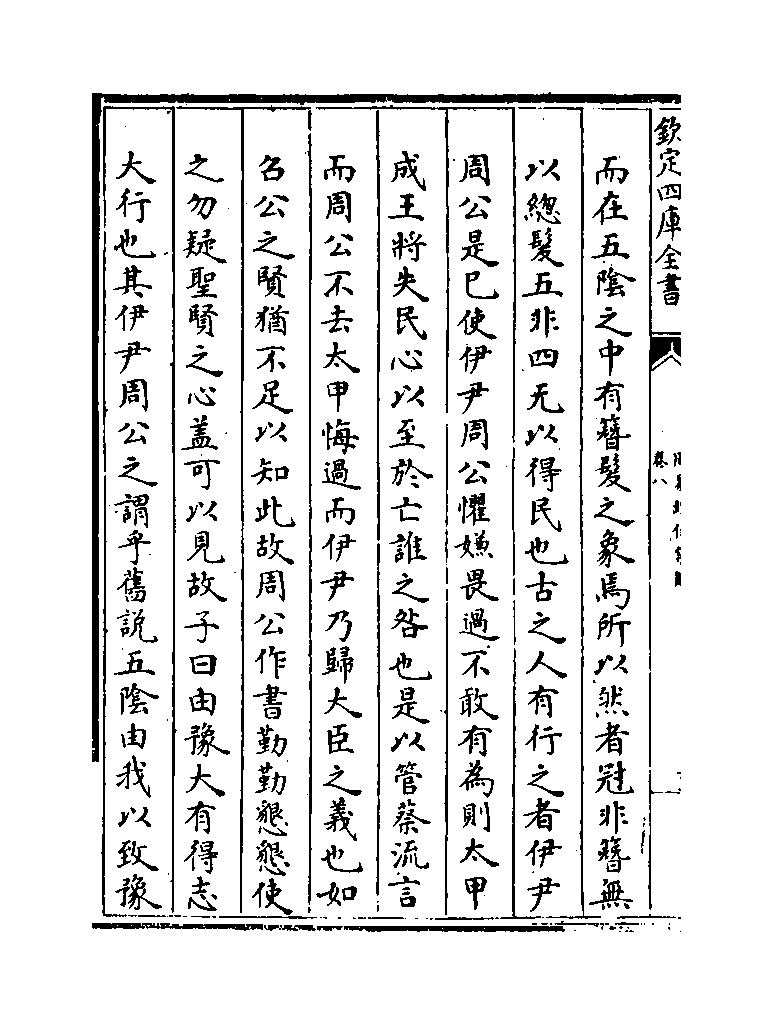 欽定四庫全書
卷八
而在五陰之中有簪髮之象焉所以然者冠非簪無
以總髮五非四无以得民也古之人有行之者伊尹
周公是已使伊尹周公懼嫌畏過不敢有為則太甲
成王將失民心以至於亡誰之咎也是以管蔡流言
而周公不去太甲悔過而伊尹乃歸大臣之義也如
召公之賢猶不足以知此故周公作書勤勤懇懇使
之勿疑聖賢之心蓋可以見故子曰由豫大有得志
大行也其伊尹周公之謂乎舊說五陰由我以致豫